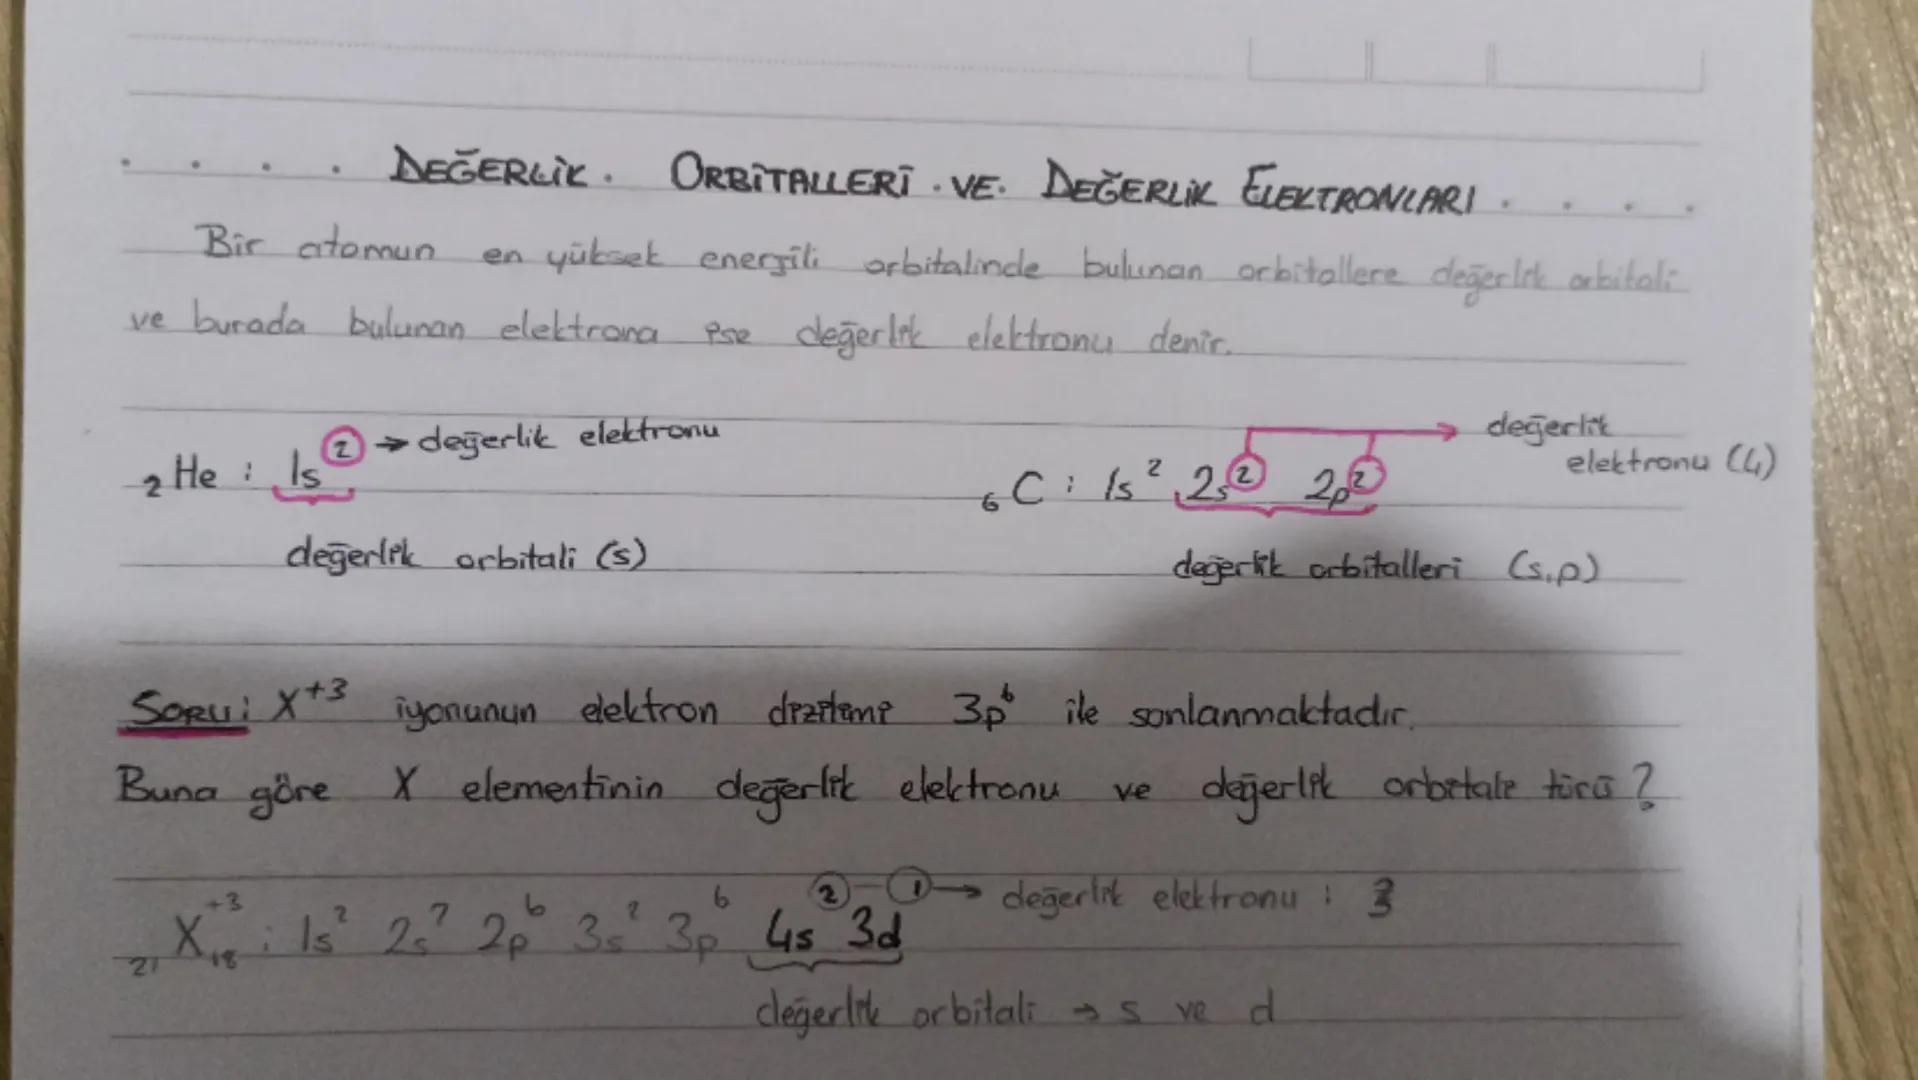 DEĞERLİK ORBİTALLERİ VE DEĞERLİK ELEKTRONLARI
Bir atomun en yüksek enerjili orbitalinde bulunan orbitallere değerlik orbitali
ve burada bulunan elektrona ise değerlik elektronu denir.
₂He : 1s² → değerlik elektronu
değerlik orbitali (s)
₆C : 1s² 2s² 2p² → değerlik elektronu (4)
değerlik orbitalleri (s,p)
Soru: X⁺³ iyonunun elektron dizilimi 3p⁶ ile sonlanmaktadır.
Buna göre X elementinin değerlik elektronu ve değerlik orbitali türü ?
₂₁X⁺³₁₈ : 1s² 2s² 2p⁶ 3s² 3p⁶ 4s² 3d¹ → değerlik elektronu : 3
değerlik orbitali → s ve d